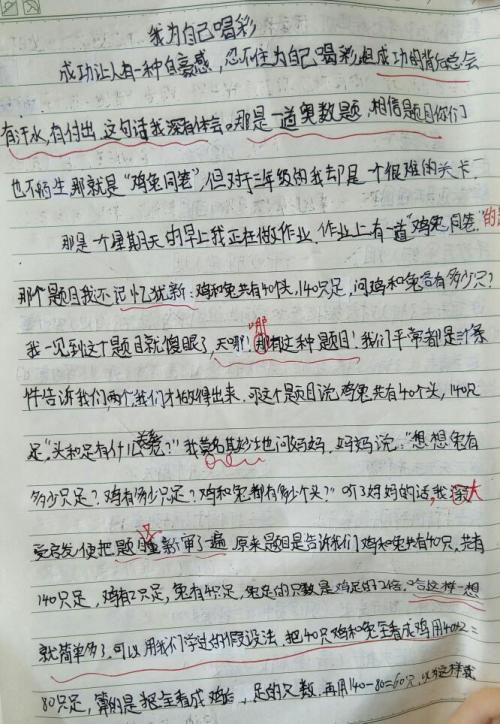 我为自己喝彩
成功让人有一种自豪感，忍不住为自己喝彩，但成功的背后总会
有汗水，有付出，这句话我深有体会。那是一道奥数题，相信题目你们
也不陌生那就是"鸡兔同笼"，但对于三年级的我却是一个很难的关卡.
那是一个星期天的早上我正在做作业.作业上有一道"鸡兔同笼"的题
那个题目我还记忆犹新:鸡和兔共有40个头，140只足，问鸡和兔各有多少只?
我一见到这个题目就傻眼了，天哪!"那有这种题目!我们平常都是
件告诉我们两个，我们才做得出来.可这个题目说鸡兔共有40个头，140只
足"头和足有什么关系?"我莫名其妙地问妈妈.妈妈说:"想想兔有
多少只足?鸡有多少只足?鸡和兔都有多少个头?"听了妈妈的话，我深大
受启发便把题目重新审了一遍.原来题目是告诉我们鸡和兔共有40只，共有
140只足，鸡有2只足，兔有4只足，兔足的只数是鸡足的2倍.哈这样一想
就简单多了.可以用我们学过的假设法.把40只鸡和兔全看成鸡用40×2=
80只足，算的是把全看成鸡后，足的只数.再用140-80=60只，